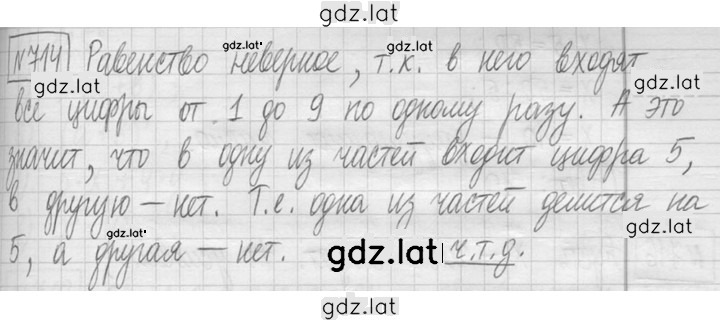 gdz.lat
№714 Равенство неверное, т.к. в него входят
gdz.lat
gdz.lat
gdz.lat
все цифры от 1 до 9 по одному разу. А это
значит, что в одну из частей входит цифра 5,
в другую – нет. Т.е. одна из частей делится на
gdz.lat
5, а другая – нет. ч.т.д.
gdz.lat
gdz.lat
gdz.lat